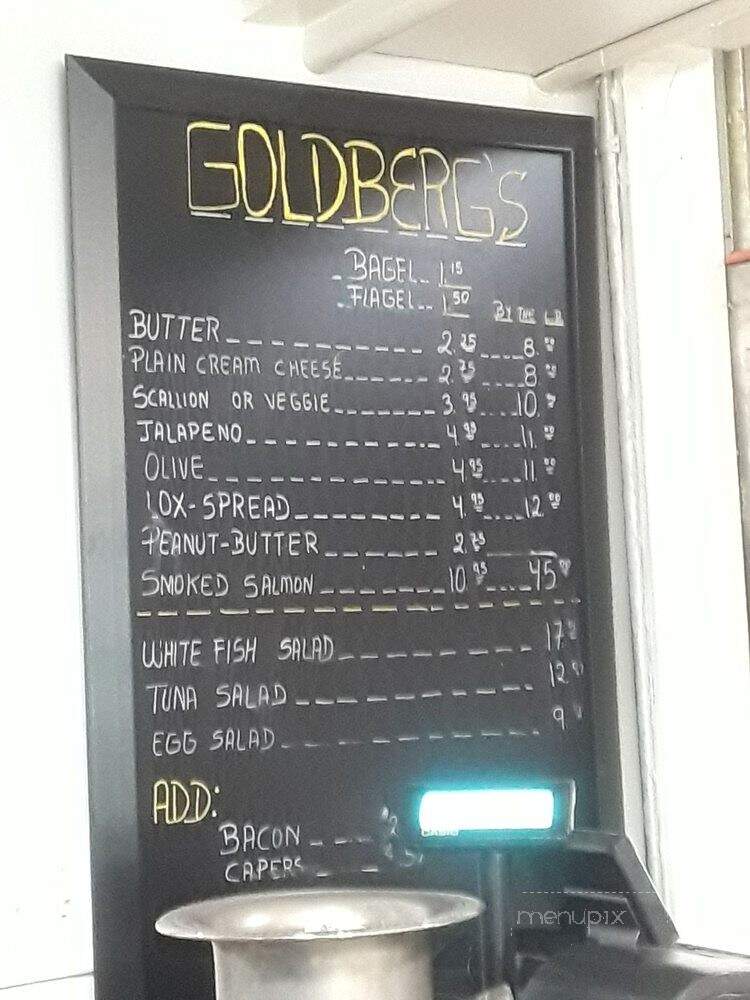 GOLDBERG'S
BAGEL 1.15
FLAGEL 1.50
BY THE LB
BUTTER 2.25 8.00
PLAIN CREAM CHEESE 2.75 8.00
SCALLION OR VEGGIE 3.95 10.00
JALAPENO 4.95 11.00
OLIVE 4.95 11.00
LOX-SPREAD 4.95 12.00
PEANUT-BUTTER 2.75
SMOKED SALMON 10.95 45
WHITE FISH SALAD 17
TUNA SALAD 12
EGG SALAD 9
ADD:
BACON 2
CAPERS
CASIO
menupix